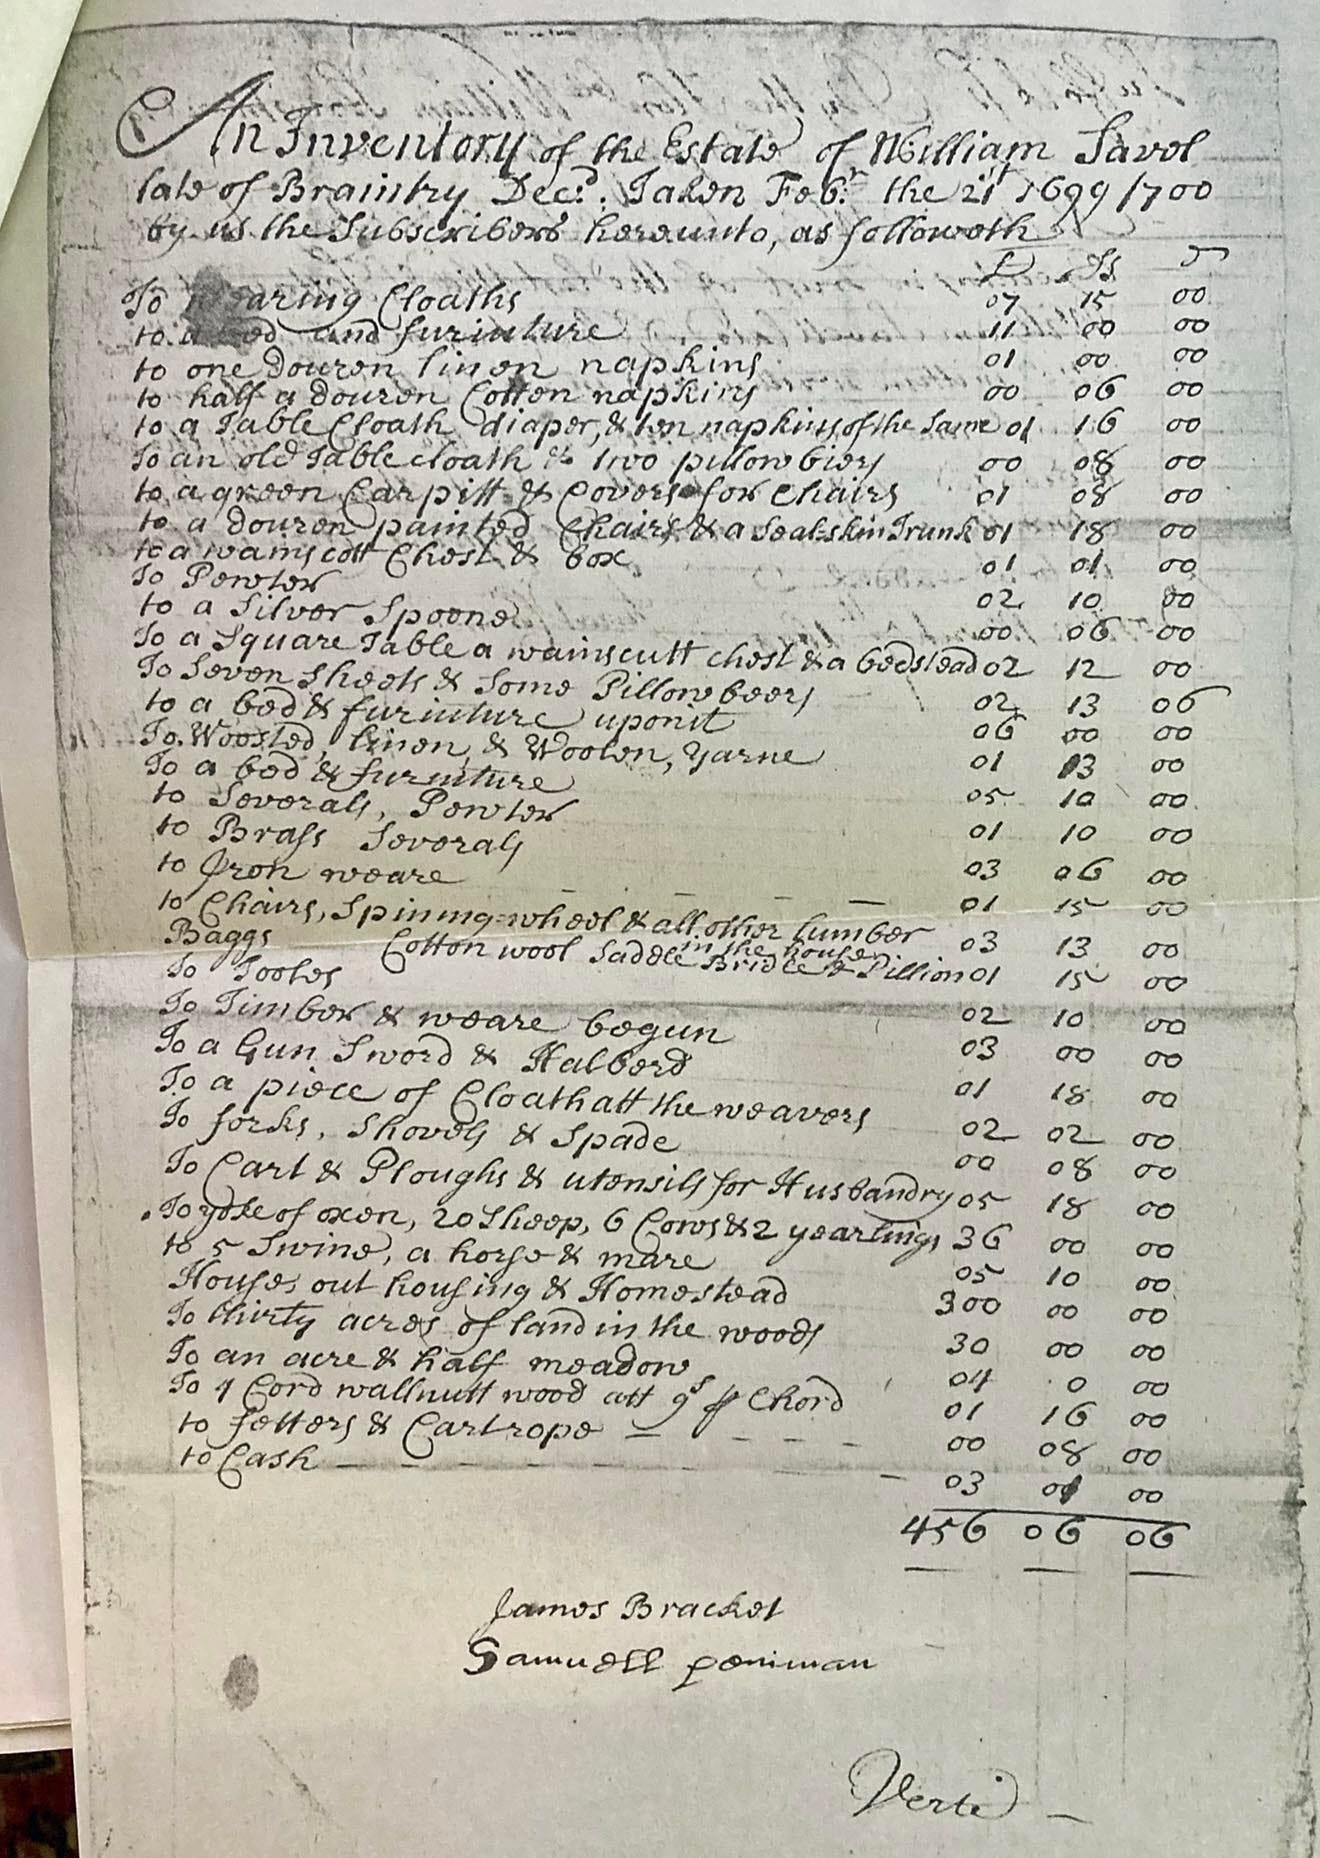 An Inventory of the Estate of William Savel
late of Braintry Decd. Taken Febr. the 21st 1699/1700
by us the Subscribers hereunto, as followeth
£ Ss D
To wearing Cloaths 07 15 00
to a bed and furiuture 11 00 00
to one douzen linen napkins 01 00 00
to half a douzen Cotten napkins 00 06 00
to a Table Cloath diaper, & ten napkins of the Same 01 16 00
To an old Table cloath & two pillowbiers 00 08 00
to a green Carpitt & Covers for Chairs 01 08 00
to a douzen painted Chairs & a Seal-skin Trunk 01 18 00
to a wainscott Chest & box 01 01 00
To Pewter 02 10 00
to a Silver Spoone 00 06 00
To a Square Table a wainscutt chest & a bedstead 02 12 00
To Seven Sheets & Some Pillowbeers 02 13 06
to a bed & furiuture uponit 06 00 00
To Woosted, linen, & Woolen, yarne 01 13 00
To a bed & furniture 05 10 00
to Severals, Pewter 01 10 00
to Brass Severals 03 06 00
to Iron weare 01 15 00
to Chairs, Spining-wheel & all other lumber in the house 03 13 00
Baggs Cotton wool Saddle Bridle & Pillion 01 15 00
To Tooles 02 10 00
To Timber & weare begun 03 00 00
To a Gun Sword & Halberd 01 18 00
To a piece of Cloath att the weavers 02 02 00
To forks, Shovels & Spade 00 08 00
To Cart & Ploughs & utensils for Husbandry 05 18 00
To yoke of oxen, 20 Sheep, 6 Cows & 2 yearlings 36 00 00
to 5 Swine, a horse & mare 05 10 00
House, out housing & Homestead 300 00 00
To thirty acres of land in the woods 30 00 00
To an acre & half meadow 04 0 00
To 4 Cord wallnutt wood att 9s ꝑ Chord 01 16 00
to fetters & Cartrope 00 08 00
to Cash 03 01 00
456 06 06
James Bracket
Samuell peniman
Verte